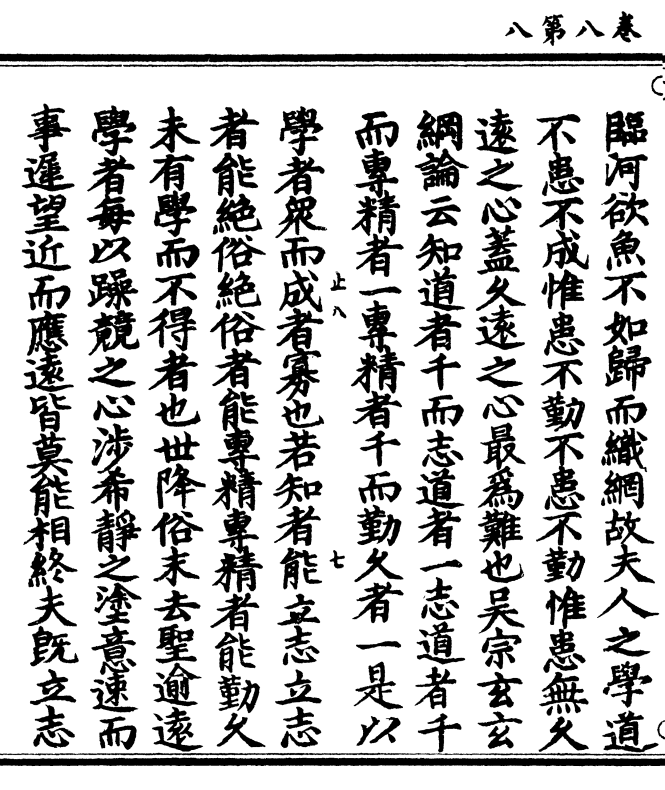 卷八第八
臨河欲魚不如歸而織網故夫人之學道
不患不成惟患不勤不患不勤惟患無久
遠之心蓋久遠之心最爲難也吴宗玄玄
綱論云知道者千而志道者一志道者千
而專精者一專精者千而勤久者一是以
止八
七
學者衆而成者寡也若知者能立志立志
者能絶俗絶俗者能專精專精者能勤久
未有學而不得者也世降俗末去聖逾遠
學者每以躁競之心涉希靜之塗意速而
事遲望近而應遠皆莫能相終夫旣立志